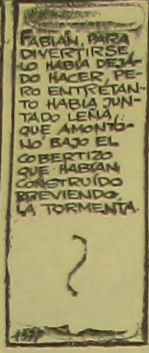 FABIÁN, PARA
DIVERTIRSE,
LO HABÍA DEJA-
DO HACER, PE-
RO ENTRETAN-
TO HABÍA JUN-
TADO LEÑA,
QUE AMONTO-
NÓ BAJO EL
COBERTIZO
QUE HABÍAN
CONSTRUÍDO
PREVIENDO
LA TORMENTA.